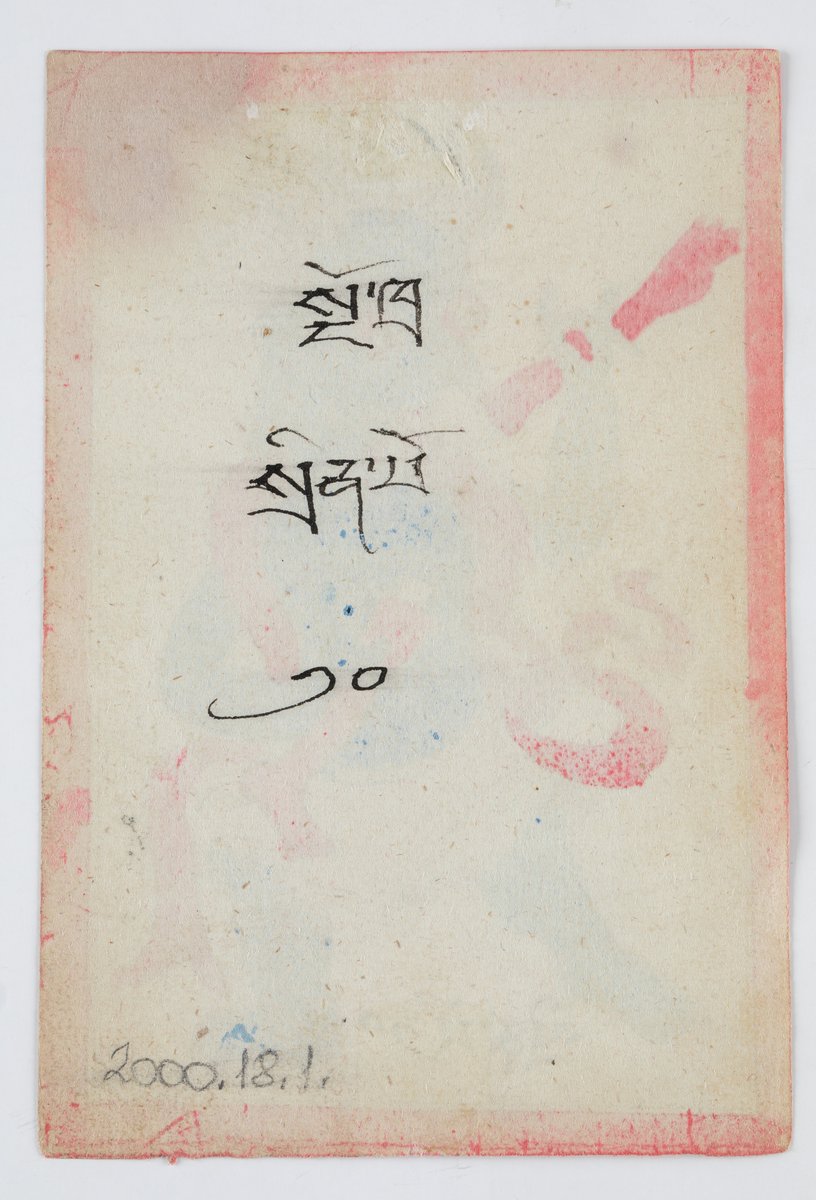 སྔོ་ཁྲ
སྲིན་པོ
༡༠
2000.18.1.